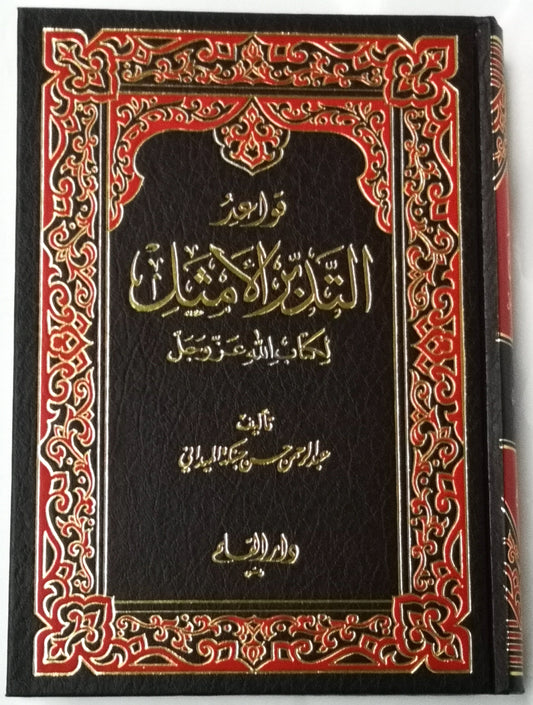 قواعد
التدبر الأمثل
لكتاب الله عز وجل
تأليف
عبد الرحمن حسن حبنكة الميداني
دار القلم
دمشق